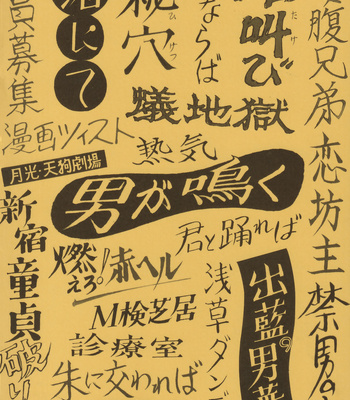 腹兄弟
恋坊主
禁男
叫び
蟻地獄
ならば
穴
ひさつ
にて
員募集
漫画ツイスト
熱気
月光・天狗劇場
男が鳴く
君と踊れば
新宿童貞破り
燃えろ!赤ヘル
M検芝居
診療室
朱に交われば
浅草ダン
出藍の男